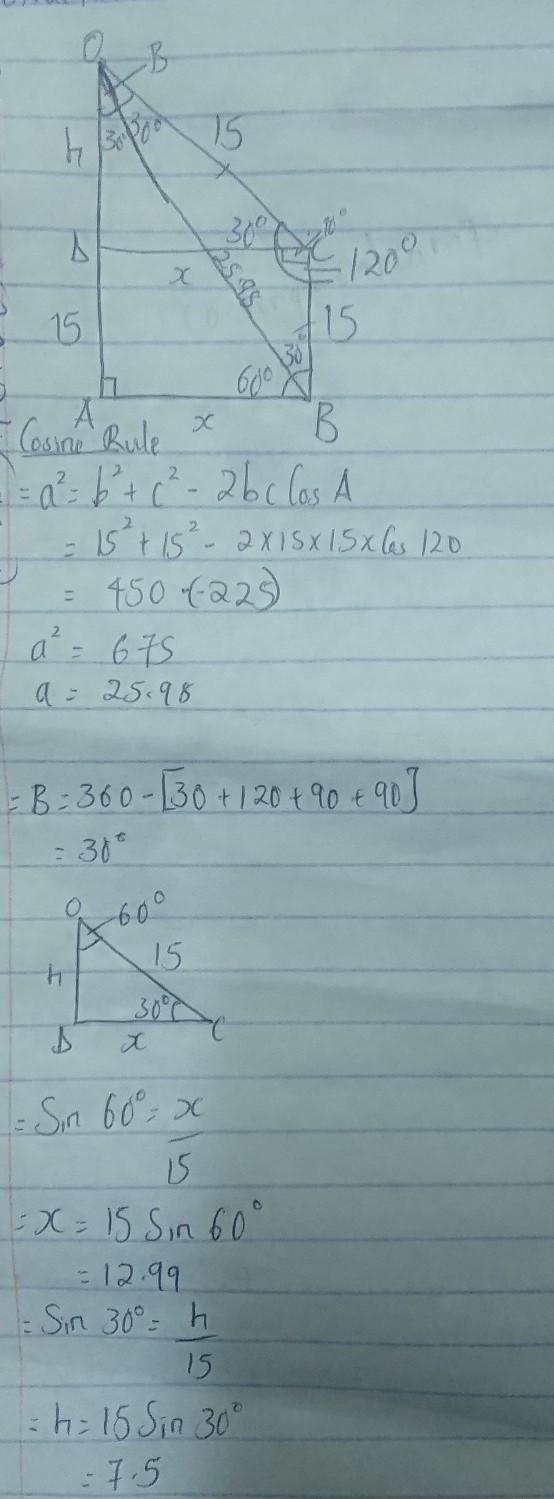 O
B
h
30
30°
15
30°
90°
D
C
120°
x
25.98
15
15
30°
60°
A
x
B
Cosine Rule
= a² = b² + c² - 2bc Cos A
= 15² + 15² - 2×15×15×Cos 120
= 450 - (-225)
a² = 675
a = 25.98
= B = 360 - [30 + 120 + 90 + 90]
= 30°
O
60°
h
15
30°
D
x
C
= Sin 60° = x
15
= x = 15 Sin 60°
= 12.99
= Sin 30° = h
15
= h = 15 Sin 30°
= 7.5